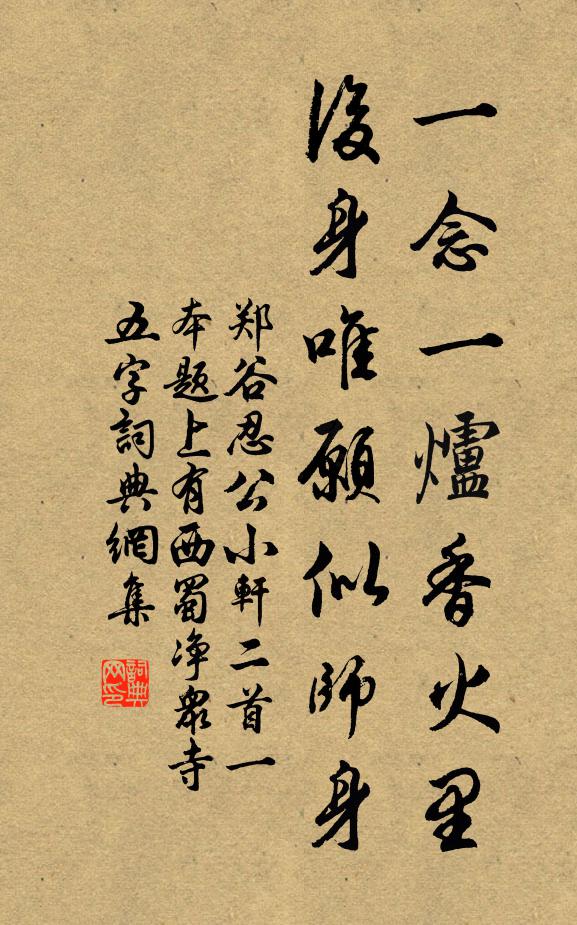 一念一爐香火里
後身唯願似師身
郑谷忍公小軒二首一
本题上有西蜀净眾寺
五字詞典網集
詞典网印